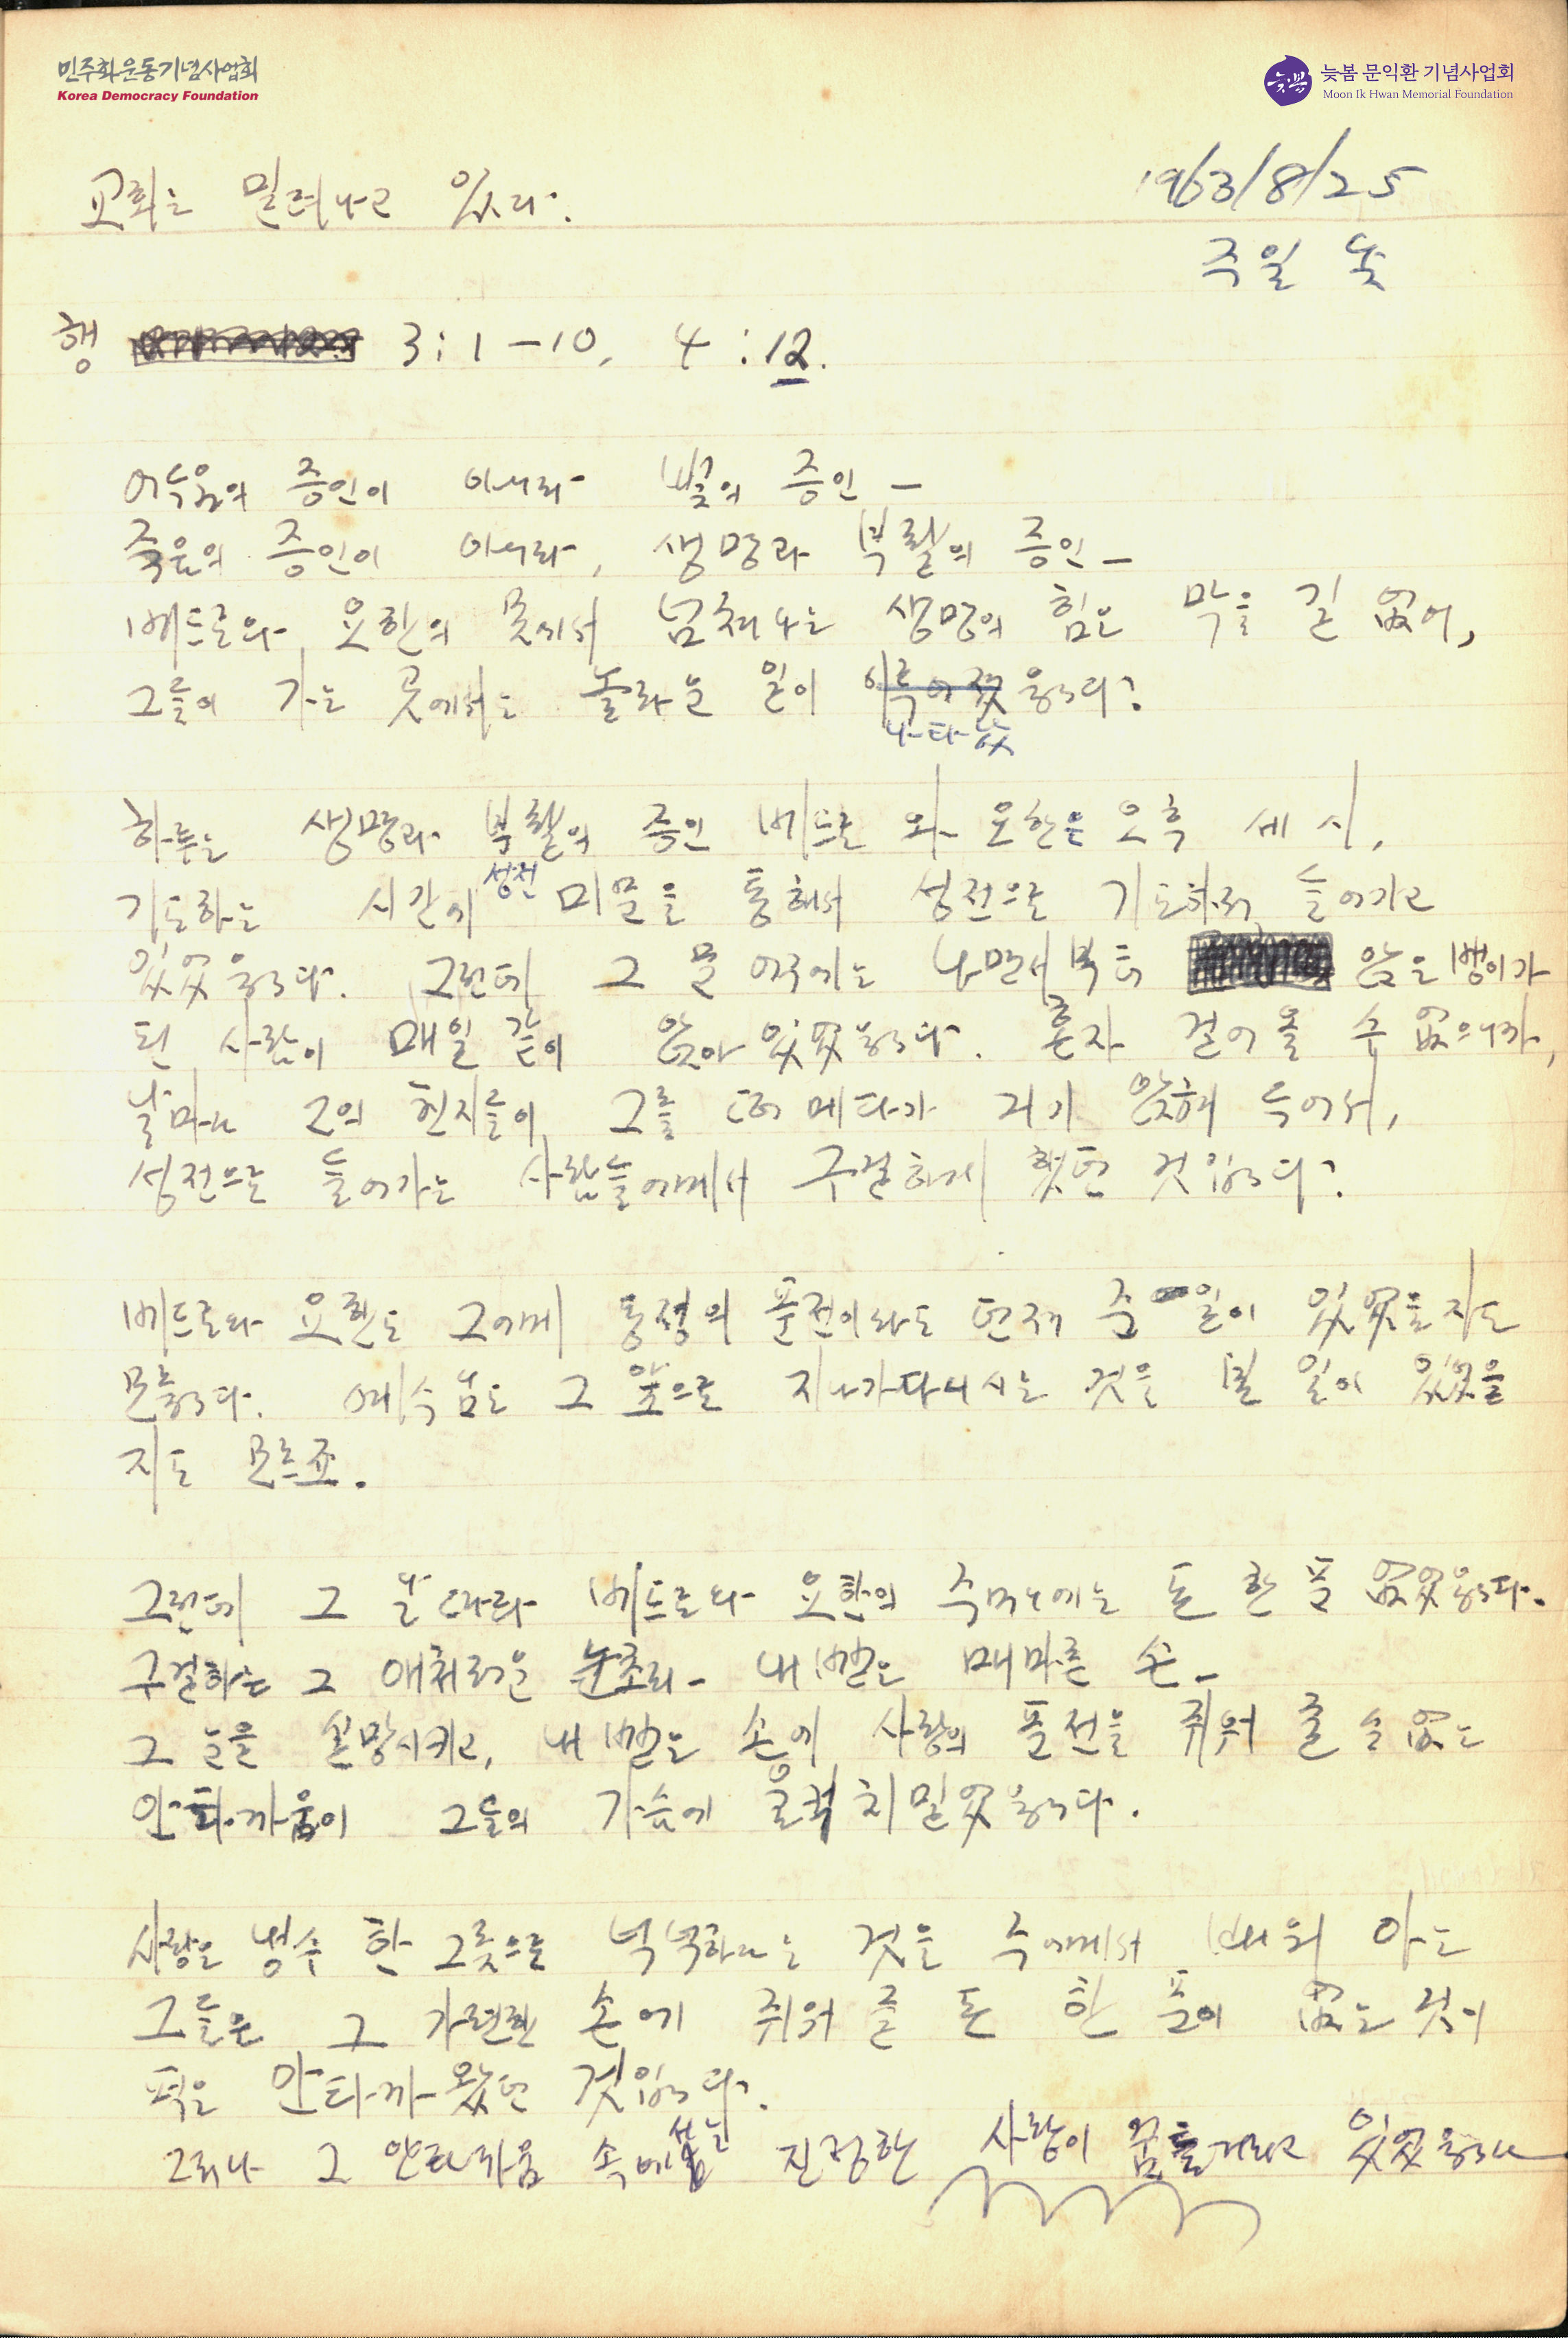 민주화운동기념사업회
Korea Democracy Foundation
늦봄 문익환 기념사업회
Moon Ik Hwan Memorial Foundation
교회는 밀려나고 있다.
1963/8/25
주일 낮
행 3:1-10, 4:12.
어두움의 증인이 아니라 빛의 증인 -
죽음의 증인이 아니라, 생명과 부활의 증인 -
베드로와 요한의 몸에서 넘쳐나는 생명의 힘은 막을 길 없어,
그들이 가는 곳에서는 놀라운 일이 이루어졌읍니다.
나타났
하루는 생명과 부활의 증인 베드로와 요한은 오후 세 시,
기도하는 시간에 성전 미문을 통해서 성전으로 기도하러 들어가고
있었읍니다. 그런데 그 문 어구에는 나면서부터 앉은뱅이가
된 사람이 매일 같이 앉아 있었읍니다. 혼자 걸어올 수 없으니까,
날마다 그의 친지들이 그를 떠메다가 거기 앉혀 두어서,
성전으로 들어가는 사람들에게서 구걸하게 했던 것입니다.
베드로와 요한도 그에게 동정의 푼전이라도 던져 준 일이 있었을지도
모릅니다. 예수님도 그 앞으로 지나가다니시는 것을 본 일이 있었을
지도 모르죠.
그런데 그 날따라 베드로와 요한의 주머니에는 돈 한 푼 없었읍니다.
구걸하는 그 애처러운 눈초리 - 내뻗은 메마른 손 -
그 눈을 실망시키고, 내뻗는 손에 사랑의 푼전을 쥐워 줄 수 없는
안타까움이 그들의 가슴에 울컥 치밀었읍니다.
사랑은 냉수 한 그릇으로 넉넉하다는 것을 주에게서 배워 아는
그들은 그 가련한 손에 쥐워 줄 돈 한 푼이 없는 것이
퍽은 안타까왔던 것입니다.
그러나 그 안타까움 속에서는 진정한 사랑이 꿈틀거리고 있었읍니다